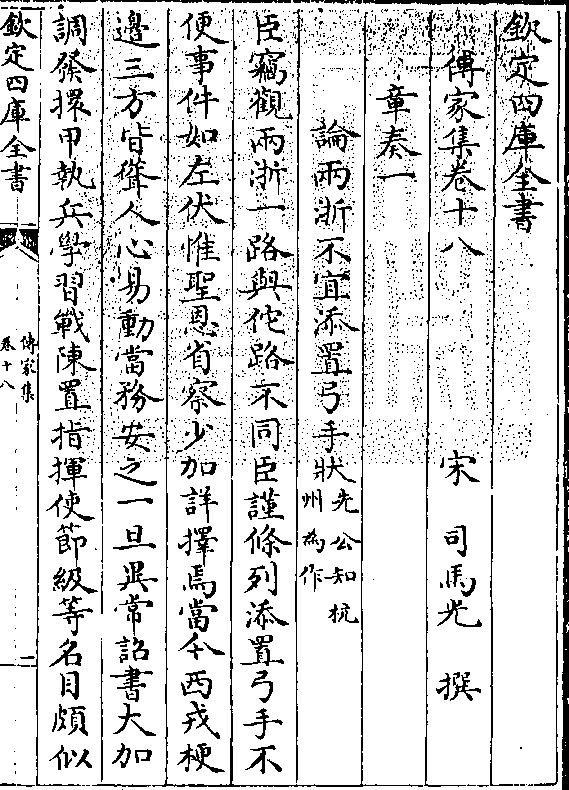 欽定四庫全書
傳家集卷十八
宋 司馬光 撰
章奏一
論兩浙不宜添置弓手狀先公知杭州為作
臣竊觀兩浙一路與佗路不同臣謹條列添置弓手不
便事件如左伏惟聖恩省察少加詳擇焉當今西戎梗
邊三方皆聳人心易動當務安之一旦異常詔書大加
調發擐甲執兵學習戰陳置指揮使節級等名目頗似
欽定四庫全書
傳家集
卷十八
一